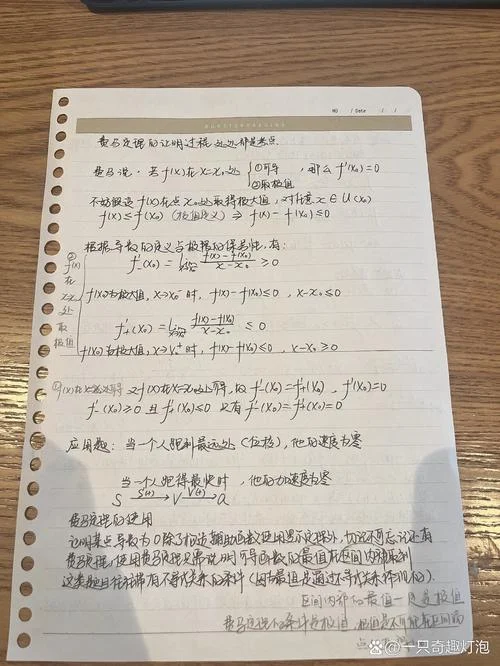 NO. / Date / /
费马定理的证明过程处处都是考点
费马说:若f(x)在x=x₀处 {①可导 ②取极值 , 那么 f'(x₀)=0
不妨假设f(x)在点x₀处取得极大值,对任意x∈U(x₀)
f(x)≤f(x₀) (极值定义) ⇒ f(x)-f(x₀)≤0
根据导数的定义与极限的保号性,有:
② f(x)在x=x₀处取极值
f'₋(x₀) = lim x→x₀⁻ f(x)-f(x₀) / x-x₀ ≥0
f(x₀)为极大值,x→x₀⁻时,f(x)-f(x₀)≤0 , x-x₀≤0
f'₊(x₀) = lim x→x₀⁺ f(x)-f(x₀) / x-x₀ ≤0
f(x₀)为极大值,x→x₀⁺时,f(x)-f(x₀)≤0 , x-x₀≥0
①f(x)在x=x₀处可导 又f(x)在x=x₀处可导,故 f'₋(x₀)=f'₊(x₀) , f'(x₀)=0
f'₋(x₀)≥0 且 f'₊(x₀)≤0 又有 f'₋(x₀)=f'₊(x₀)=0
应用题:当一个人跑到最远处(位移),他的速度为零
当一个人跑得最快时,他的加速度为零
S S'(t)→ V V'(t)→ a
费马定理的使用
证明某点导数为0除了构造辅助函数使用罗尔定理外,切记不可忘记还有
费马定理,使用费马定理只需说明可导函数的最值在区间内部取到
这类题目往往带有不等关系的条件(因为最值是通过不等关系体现的).
区间内部的最值一定是极值
费马定理的条件是极值,极值是不可能在区间端
点
一只奇趣灯泡